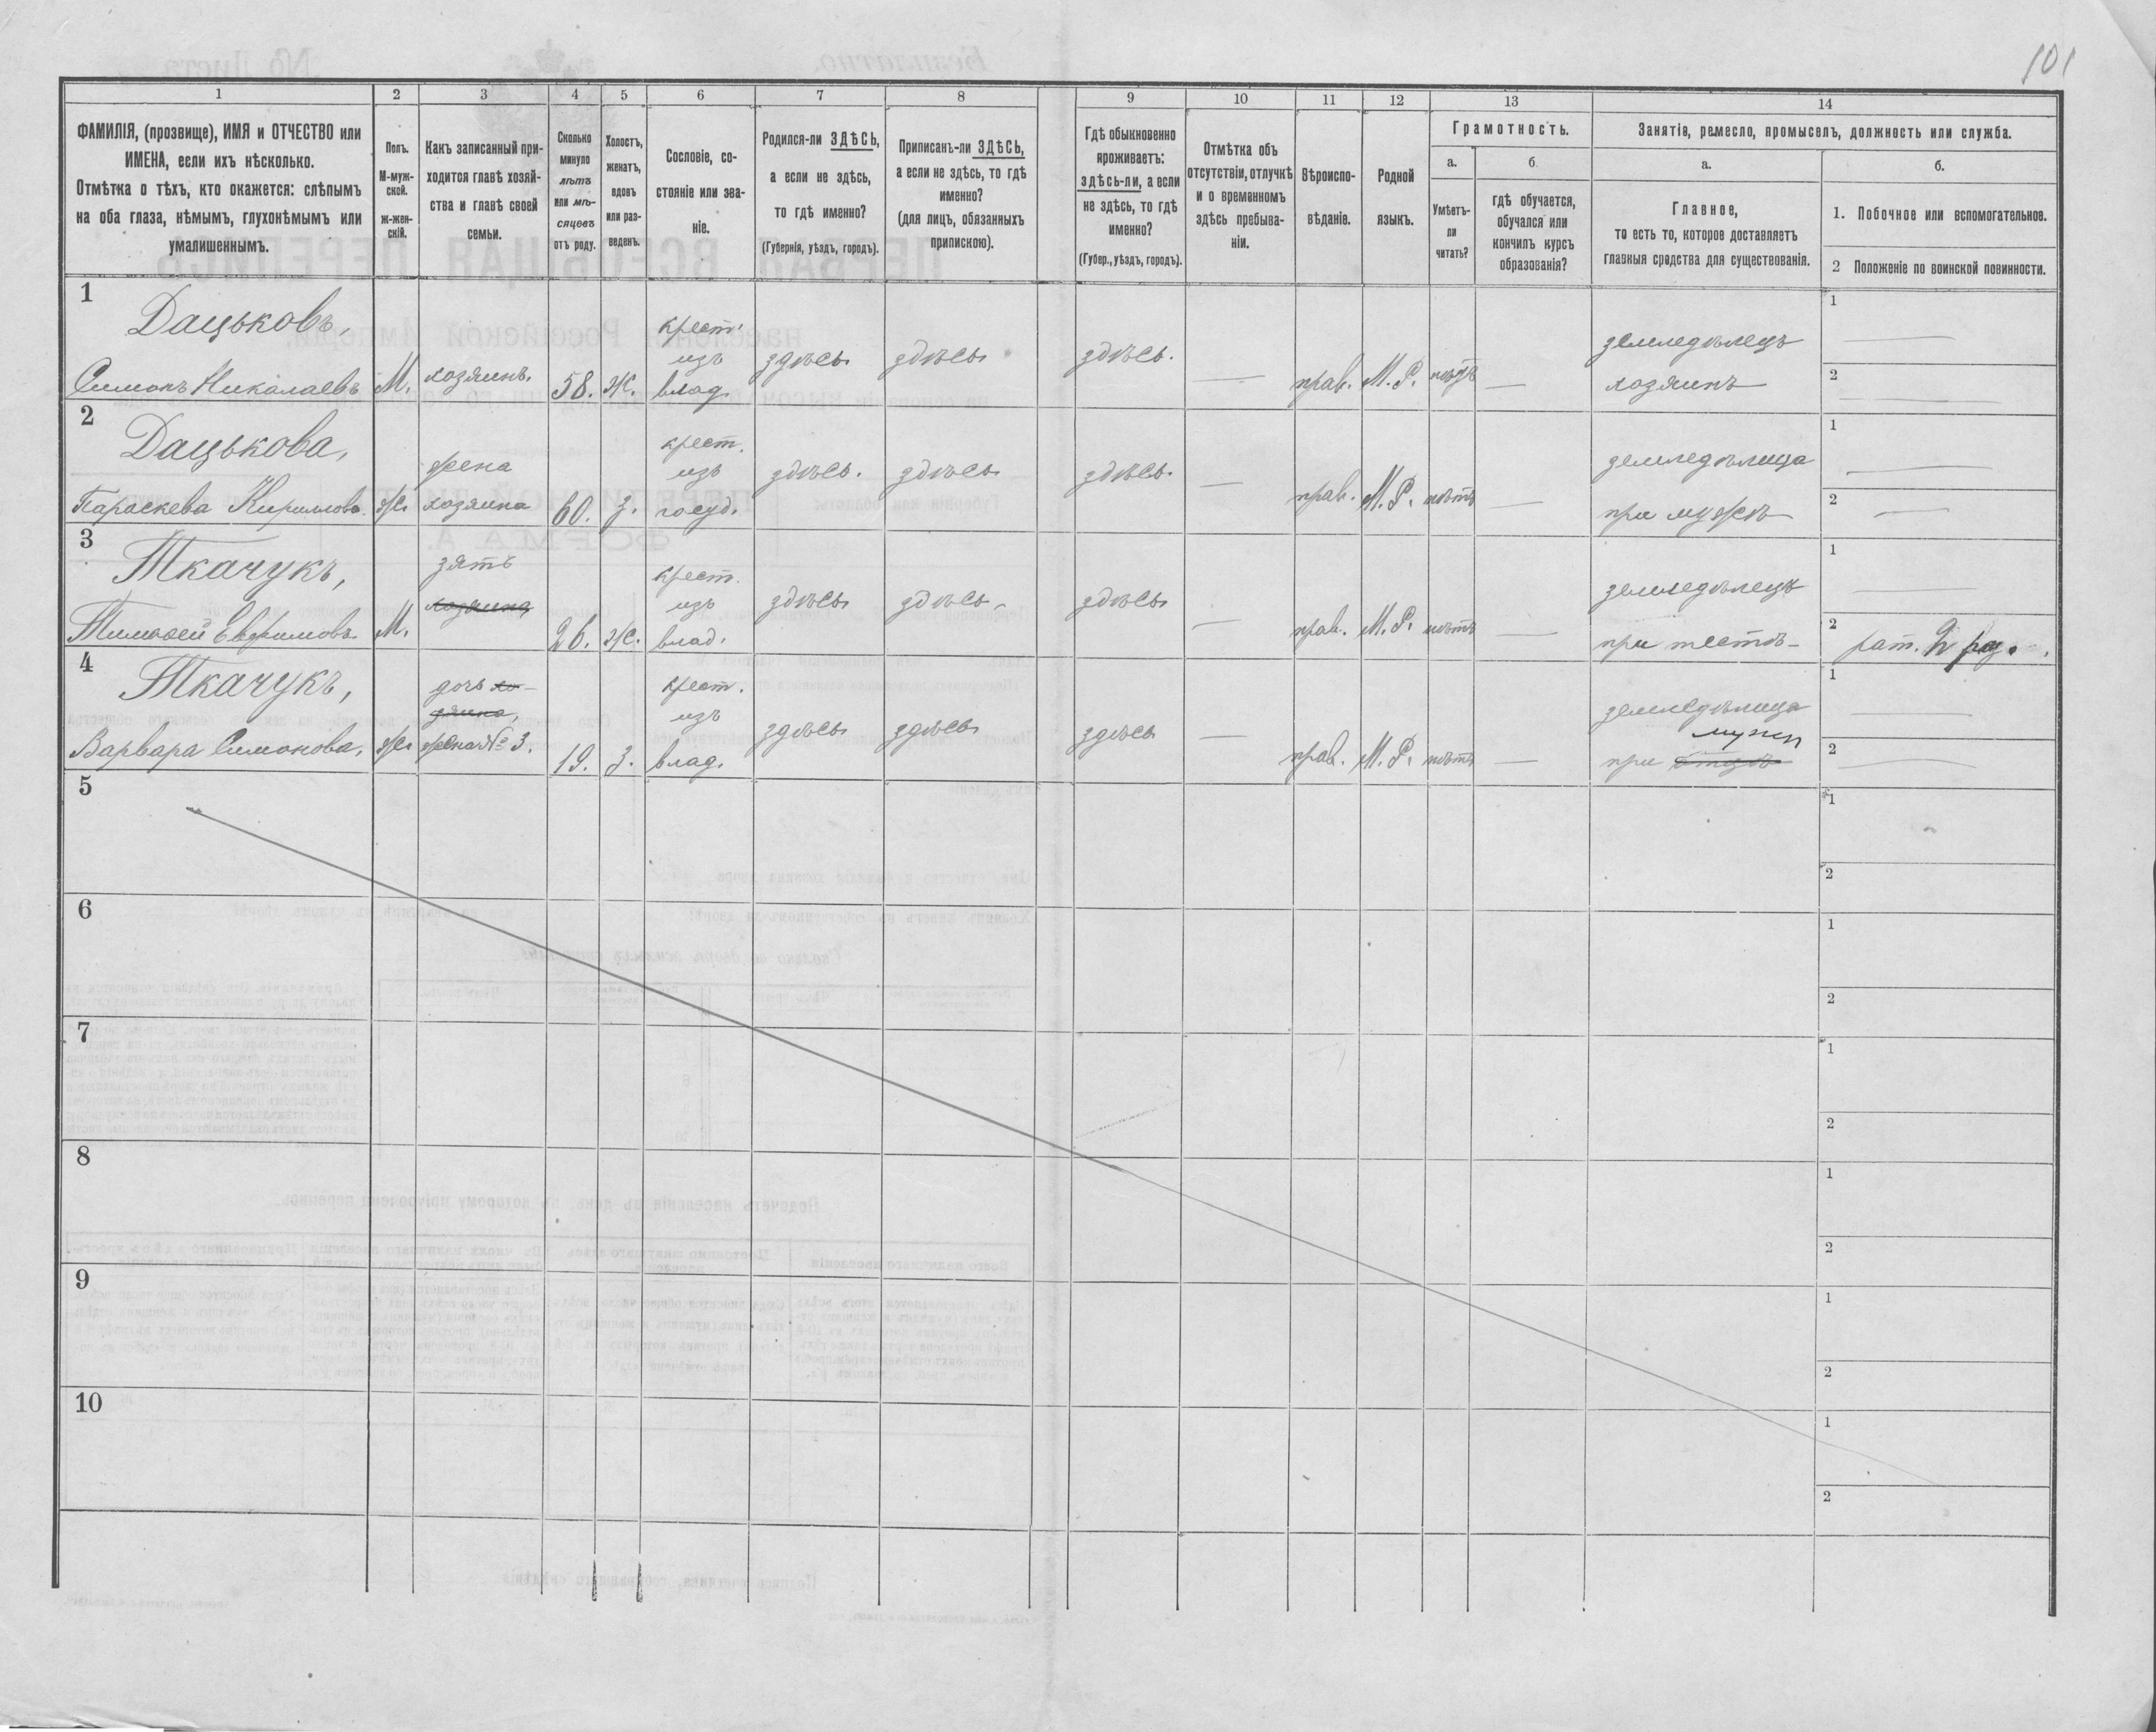 101
1 2 3 4 5 6 7 8 9 10 11 12 13 14
ФАМИЛІЯ, (прозвище), ИМЯ и ОТЧЕСТВО или
ИМЕНА, если ихъ нѣсколько.
Отмѣтка о тѣхъ, кто окажется: слѣпымъ
на оба глаза, нѣмымъ, глухонѣмымъ или
умалишеннымъ.
Полъ.
М-муж-
ской.
ж-жен-
скій.
Какъ записанный при-
ходится главѣ хозяй-
ства и главѣ своей
семьи.
Сколько
минуло
лѣтъ
или мѣ-
сяцевъ
отъ роду.
Холостъ,
женатъ,
вдовъ
или раз-
веденъ.
Сословіе, со-
стояніе или зва-
ніе.
Родился-ли ЗДѢСЬ,
а если не здѣсь,
то гдѣ именно?
(Губернія, уѣздъ, городъ).
Приписанъ-ли ЗДѢСЬ,
а если не здѣсь, то гдѣ
именно?
(для лицъ, обязанныхъ
припискою).
Гдѣ обыкновенно
проживаетъ:
здѣсь-ли, а если
не здѣсь, то гдѣ
именно?
(Губер., уѣздъ, городъ).
Отмѣтка объ
отсутствіи, отлучкѣ
и о временномъ
здѣсь пребыва-
ніи.
Вѣроиспо-
вѣданіе.
Родной
языкъ.
Грамотность.
а.
Умѣетъ-
ли
читать?
б.
гдѣ обучается,
обучался или
кончилъ курсъ
образованія?
Занятіе, ремесло, промыселъ, должность или служба.
а.
Главное,
то есть то, которое доставляетъ
главныя средства для существованія.
б.
1. Побочное или вспомогательное.
2 Положеніе по воинской повинности.
1
Дацьковъ,
Симонъ Николаевъ
М.
хозяинъ.
58.
ж.
крест.
изъ
влад.
здѣсь
здѣсь
здѣсь.
—
прав.
М. Р.
нѣтъ
—
земледѣлецъ
хозяинъ
1 —
2 —
2
Дацькова,
Параскева Кирилова.
ж.
жена
хозяина
60.
з.
крест.
изъ
госуд.
здѣсь.
здѣсь
здѣсь.
—
прав.
М. Р.
нѣтъ
—
земледѣлица
при мужѣ
1 —
2 —
3
Ткачукъ,
Тимоѳей Евфимовъ
М.
зять
хозяина
26.
ж.
крест.
изъ
влад.
здѣсь
здѣсь
здѣсь
—
прав.
М. Р.
нѣтъ
—
земледѣлецъ
при тестѣ
1 —
2 рат. 2 раз.
4
Ткачукъ,
Варвара Симонова,
ж.
дочь хо-
зяина,
жена № 3.
19.
з.
крест.
изъ
влад.
здѣсь
здѣсь
здѣсь
—
прав.
М. Р.
нѣтъ
—
земледѣлица
мужѣ
при отцѣ
1 —
2 —
5
1
2
6
1
2
7
1
2
8
1
2
9
1
2
10
1
2